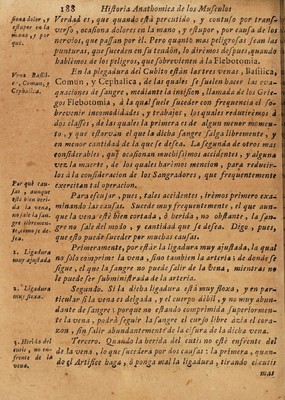 188 Historia Anathomica de los Musculos
siona dolor, y
estupor en la
mano, y por
què.
Verdad es, que quando està percutido, y contuso por trans-
verso, ocasiona dolores en la mano, y estupor, por causa de los
nervios, que passan por èl. Pero quanto mas peligrosas sean las
punturas, que suceden en su tendòn, lo dirèmos despues, quando
hablèmos de los peligros, que sobrevienen à la Flebotomia.
Vena Basili-
ca, Comun, y
Cephalica.
En la plegadura del Cubito estàn las tres venas, Basilica,
Comùn, y Cephalica, de las quales se suelen hacer las eva-
quaciones de sangre, mediante la incision, llamada de los Grie-
gos Flebotomia, à la qual suele suceder con frequencia el so-
brevenir incomodidades, y trabajos, los quales reducirèmos à
dos classes, de las quales la primera es de algun menor momen-
to, y que estorvan el que la dicha sangre salga libremente, y
en menor cantidad de la que se desea. La segunda de otros mas
considerables, que ocasionan muchissimos accidentes, y alguna
vez la muerte, de los quales harèmos mencion, para reducir-
los à la consideracion de los Sangradores, que frequentemente
exercitan tal operacion.
Por què cau-
sas, aunque
estè bien veri-
da la vena,
no sale la san-
gre libremen-
te, como se de-
sea.
Para escusar, pues, tales accidentes, irèmos primero exa-
minando las causas. Sucede muy frequentemente, el que aun-
que la vena estè bien cortada, ò herida, no obstante, la san-
gre no sale del modo, y cantidad que se desea. Digo, pues,
que esto puede suceder por muchas causas.
1. Ligadura
muy ajustada.
Primeramente, por estàr la ligadura muy ajustada, la qual
no solo comprime la vena, sino tambien la arteria; de donde se
sigue, el que la sangre no pueda salir de la vena, mientras no
le puede ser subministrada de la arteria.
2. Ligadura
muy floxa.
Segundo. Si la dicha ligadura està muy floxa, y en par-
ticular si la vena es delgada, y el cuerpo dèbil, y no muy abun-
dante de sangre; porque no estando comprimida superiormen-
te la vena, podrà seguir la sangre el curso libre àzia el cora-
zon, sin salir abundantemente de la cisura de la dicha vena.
3. Herida del
cutis, no en-
frente de la
vena.
Tercero. Quando la herida del cutis no està enfrente del
de la vena, lo que sucederà por dos causas: la primera, quan-
do el Artifice haga, ò ponga mal la ligadura, tirando el cutis
mas